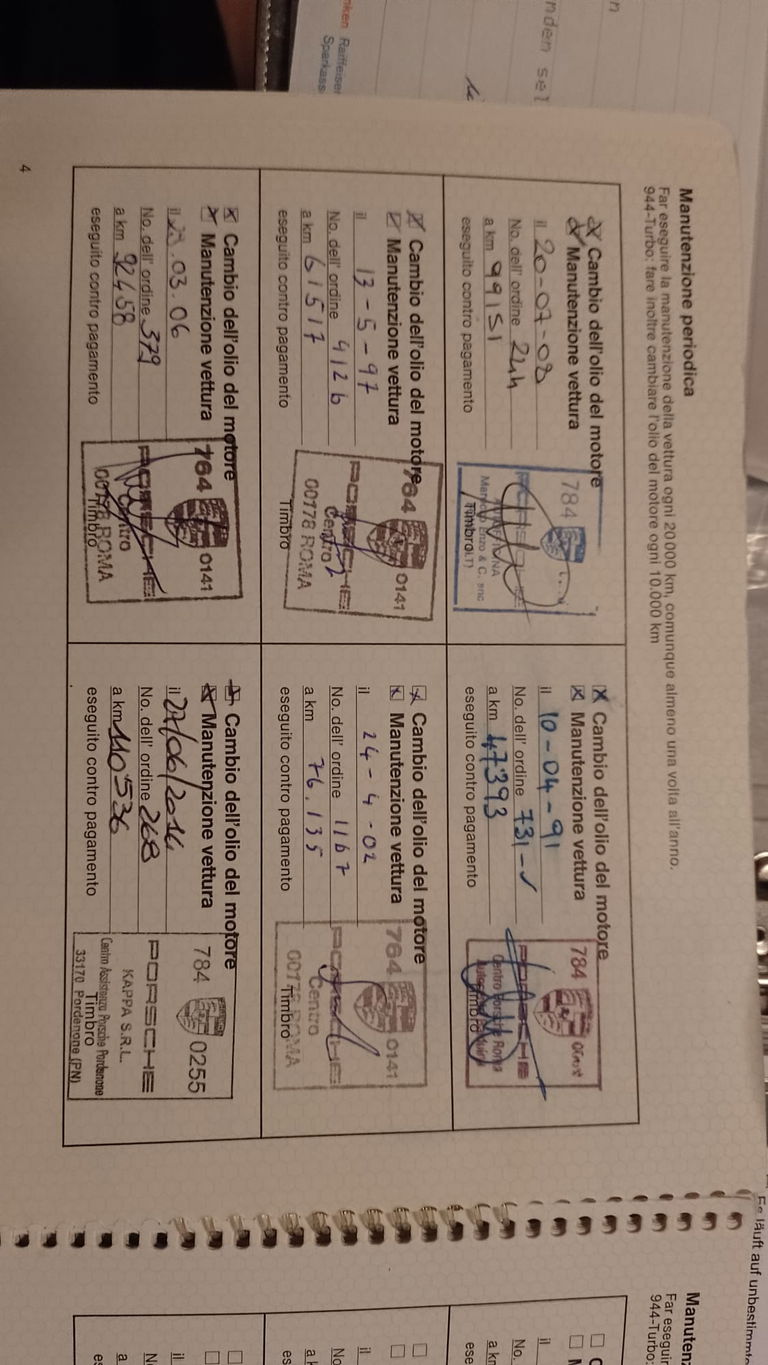 Manutenzione periodica
Far eseguire la manutenzione della vettura ogni 20 000 km, comunque almeno una volta all'anno.
944-Turbo: fare inoltre cambiare l'olio del motore ogni 10.000 km
Cambio dell'olio del motore
Manutenzione vettura
il 20-07-08
No. dell' ordine 244
a km 99151
eseguito contro pagamento
784
Timbro
Cambio dell'olio del motore
Manutenzione vettura
il 10-04-91
No. dell' ordine 731
a km 47393
eseguito contro pagamento
784
PORSCHE
Centro Porsche Roma
Timbro
Cambio dell'olio del motore
Manutenzione vettura
il 13-5-97
No. dell' ordine 4126
a km 61517
eseguito contro pagamento
784 0141
PORSCHE
Centro
00178 ROMA
Timbro
Cambio dell'olio del motore
Manutenzione vettura
il 24-4-02
No. dell' ordine 1167
a km 76.135
eseguito contro pagamento
784 0141
PORSCHE
Centro
00178 ROMA
Timbro
Cambio dell'olio del motore
Manutenzione vettura
il .03.06
No. dell' ordine 379
a km 92458
eseguito contro pagamento
784 0141
PORSCHE
Centro
00178 ROMA
Timbro
Cambio dell'olio del motore
Manutenzione vettura
il 27/06/2014
No. dell' ordine 268
a km 110536
eseguito contro pagamento
784 0255
PORSCHE
KAPPA S.R.L.
Centro Assistenza Porsche Pordenone
Timbro
33170 Pordenone (PN)
4
Raiffeisen
Sparkass
ndem sel
läuft auf unbestimmte
Manuten
Far eseguir
944-Turbo:
il
No.
a km
ese
il
No
a k
es
il
N
a
es